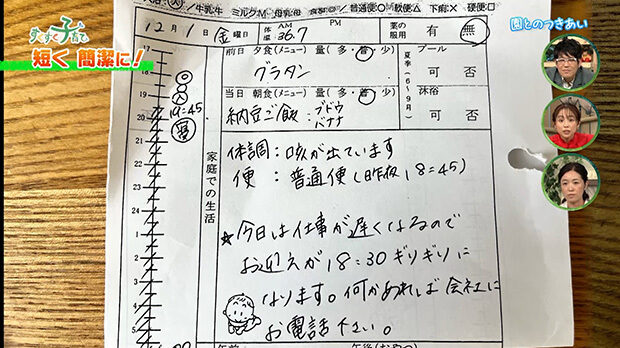 すくすく子育て
短く 簡潔に!
園とのつきあい
食 ○/牛乳 牛 ミルクM 母乳 母 食事◎ / 普通便○ 軟便△ 下痢× 硬便□
12月1日(金)曜日 体温 AM 36.7 PM 薬の服用 有 無
前日 夕食(メニュー) 量(多・普・少) プール
グラタン
夏季(6~9月) 可 否
当日 朝食(メニュー) 量(多・普・少) 沐浴
納豆ご飯:ブドウ
バナナ
可 否
18
19
19=45
20
21
22
23
24
1
2
3
4
5
家庭での生活
体調:咳が出ています
便 : 普通便(昨夜18=45)
☆今日は仕事が遅くなるので
お迎えが18:30ギリギリに
なります。何かあれば会社に
お電話下さい。